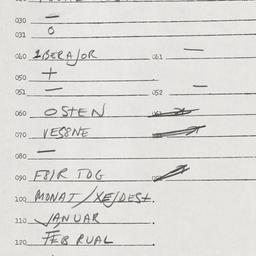 030 —
031 0
040 1BERAJOR 041 —
050 +
051 — 052 —
060 OSTEN
070 VE80NE
080 —
090 F81R TOG
100 MONAT/XE/DEST.
110 JANUAR
120 FEB RUAL